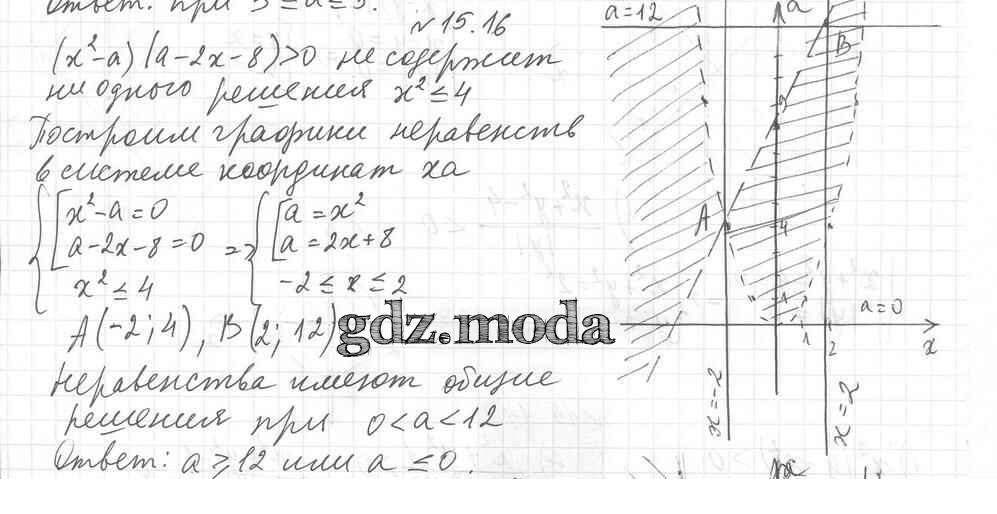 Ответ: при 3 ≤ a ≤ 5.
№ 15.16
(x²-a)(a-2x-8)>0 не содержит
ни одного решения x² ≤ 4
Построим графики неравенств
в системе координат xa
{ [ x²-a=0 => { [ a = x²
a-2x-8=0 a = 2x+8
x² ≤ 4 -2 ≤ x ≤ 2
A(-2;4), B(2;12)
gdz.moda
Неравенства имеют общие
решения при 0<a<12
Ответ: a ≥ 12 или a ≤ 0.
a=12
a
B
A
4
1
a=0
1
2
x
x=-2
x=2